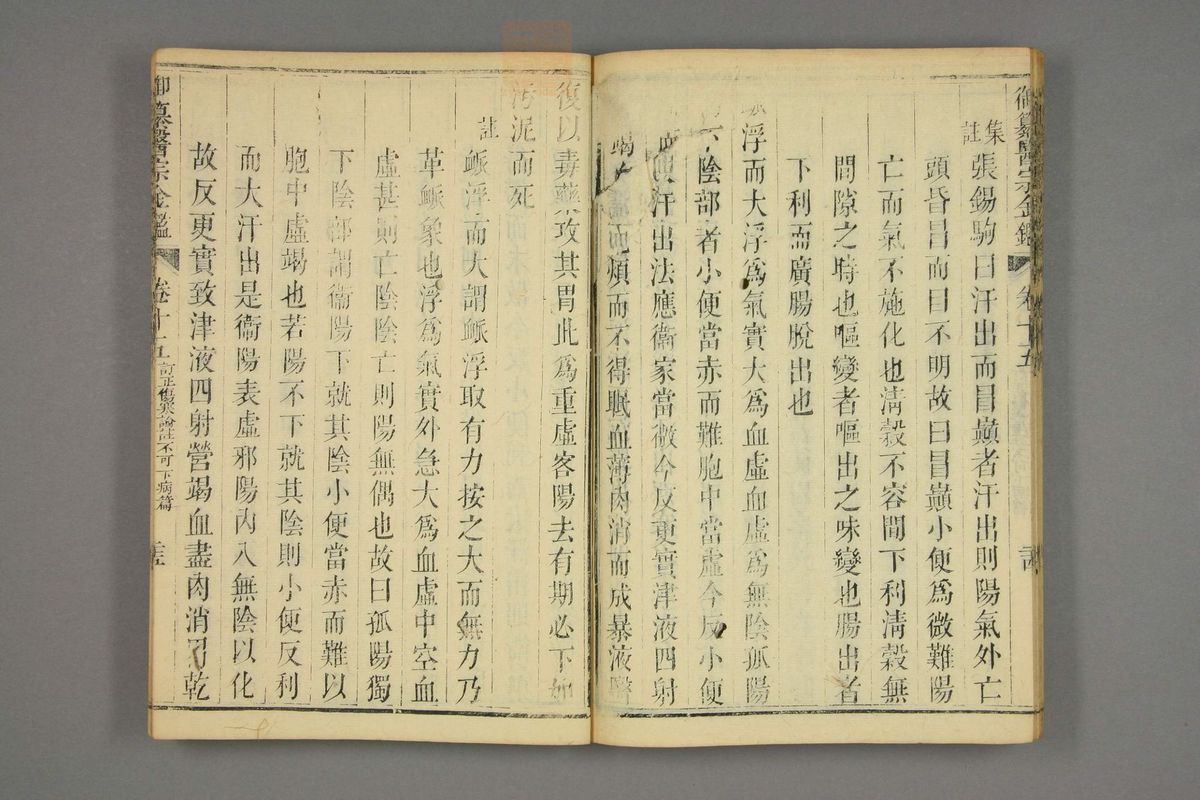 御纂醫宗金鑑 卷十五
集註張錫駒曰汗出而冒巔者汗出則陽氣外亡
頭昏冒而曰不明故曰冒巔小便爲微難陽
亡而氣不施化也清穀不容間下利清穀無
間隙之時也嘔變者嘔出之味變也腸出者
下利而廣腸脫出也
浮而大浮爲氣實大爲血虛血虛爲無陰孤陽
下陰部者小便當赤而難胞中當虛今反小便
汗出法應衞家當微今反更實津液四射
竭而煩而不得眠血薄肉消而成暴液醫
復以毒藥攻其胃此爲重虛客陽去有期必下如
汚泥而死
註脈浮而大謂脈浮取有力按之大而無力乃
革脈象也浮爲氣實外急大爲血虛中空血
虛甚則亡陰陰亡則陽無偶也故曰孤陽獨
下陰部謂衞陽下就其陰小便當赤而難以
胞中虛竭也若陽不下就其陰則小便反利
而大汗出是衞陽表虛邪陽內入無陰以化
故反更實致津液四射營竭血盡肉消乾
御纂醫宗金鑑 卷十五 訂正傷寒論註不可下病篇